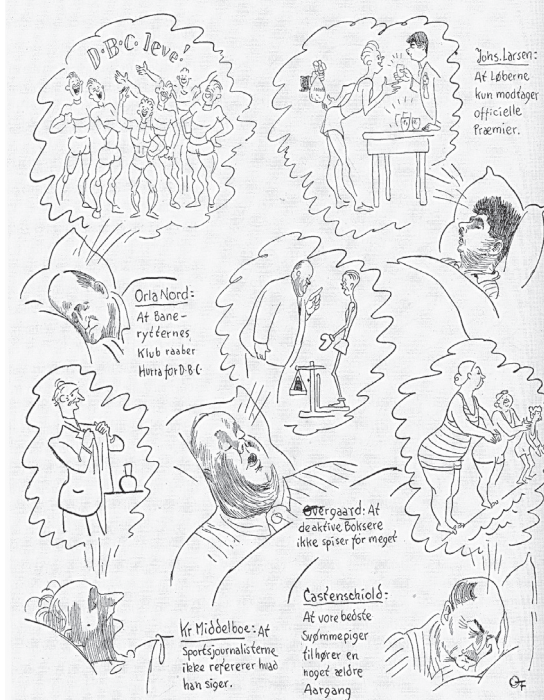 D·B·C· leve!
Johs. Larsen:
At Løberne
kun modtager
officielle
Præmier.
Orla Nord:
At Bane-
rytternes
Klub raaber
Hurra for D·B·C·
Overgaard: At
de aktive Boksere
ikke spiser for meget
Kr Middelboe: At
Sportsjournalisterne
ikke refererer hvad
han siger.
Castenschiold:
At vore bedste
Svømmepiger
tilhører en
noget ældre
Aargang